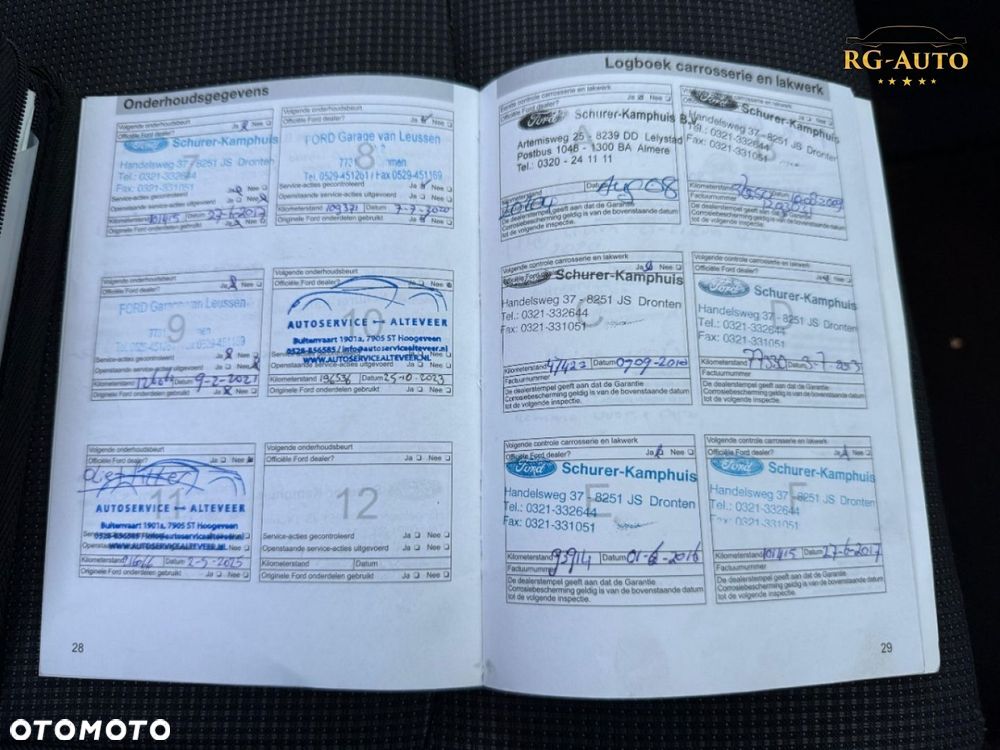 RG-AUTO
Onderhoudsgegevens
Volgende onderhoudsbeurt
Officiële Ford dealer? Ja Nee
Ford Schurer-Kamphuis
7
Handelsweg 37 - 8251 JS Dronten
Tel.: 0321-332644
Fax: 0321-331051
Service-acties gecontroleerd Ja Nee
Openstaande service-acties uitgevoerd Ja Nee
Kilometerstand 101415 Datum 27-6-2017
Originele Ford onderdelen gebruikt Ja Nee
Volgende onderhoudsbeurt
Officiële Ford dealer? Ja Nee
FORD Garage van Leussen
8
Tel. 0529-451261 / Fax 0529-451169
Service-acties gecontroleerd Ja Nee
Openstaande service-acties uitgevoerd Ja Nee
Kilometerstand 109371 Datum 7-7-2020
Originele Ford onderdelen gebruikt Ja Nee
Volgende onderhoudsbeurt
Officiële Ford dealer? Ja Nee
FORD Garage van Leussen
9
Service-acties gecontroleerd Ja Nee
Openstaande service-acties Ja Nee
Kilometerstand Datum 9-2-2021
Originele Ford onderdelen gebruikt Ja Nee
Volgende onderhoudsbeurt
Officiële Ford dealer? Ja Nee
10
AUTOSERVICE ALTEVEER
Buitenvaart 1901a, 7905 ST Hoogeveen
0528-856585 / info@autoservicealteveer.nl
WWW.AUTOSERVICEALTEVEER.NL
Openstaande service-acties uitgevoerd Ja Nee
Kilometerstand 196536 Datum 25-10-2023
Originele Ford onderdelen gebruikt Ja Nee
Volgende onderhoudsbeurt
Officiële Ford dealer? Ja Nee
11
AUTOSERVICE ALTEVEER
Buitenvaart 1901a, 7905 ST Hoogeveen
0528-856585 / info@autoservicealteveer.nl
WWW.AUTOSERVICEALTEVEER.NL
Kilometerstand Datum 2-5-2025
Originele Ford onderdelen gebruikt Ja Nee
Volgende onderhoudsbeurt
Officiële Ford dealer? Ja Nee
12
Service-acties gecontroleerd Ja Nee
Openstaande service-acties uitgevoerd Ja Nee
Kilometerstand Datum
Originele Ford onderdelen gebruikt Ja Nee
28
Logboek carrosserie en lakwerk
Eerste controle carrosserie en lakwerk
Ja Nee
Ford Schurer-Kamphuis B.V.
Artemisweg 25 - 8239 DD Lelystad
Postbus 1048 - 1300 BA Almere
Tel.: 0320 - 24 11 11
Kilometerstand Datum Aug 08
De dealerstempel geeft aan dat de Garantie
Corrosiebescherming geldig is van de bovenstaande datum
tot de volgende inspectie.
Ford Schurer-Kamphuis
B
Handelsweg 37 - 8251 JS Dronten
Tel.: 0321-332644
Fax: 0321-331051
Kilometerstand
Factuurnummer
De dealerstempel geeft aan dat de Garantie
Corrosiebescherming geldig is van de bovenstaande datum
tot de volgende inspectie.
Volgende controle carrosserie en lakwerk
Officiële Ford Ja Nee
Schurer-Kamphuis
C
Handelsweg 37 - 8251 JS Dronten
Tel.: 0321-332644
Fax: 0321-331051
Kilometerstand 47422 Datum 07-09-2010
Factuurnummer
De dealerstempel geeft aan dat de Garantie
Corrosiebescherming geldig is van de bovenstaande datum
tot de volgende inspectie.
Volgende controle carrosserie en lakwerk
Officiële Ford dealer? Ja Nee
Ford Schurer-Kamphuis
D
Handelsweg 37 - 8251 JS Dronten
Tel.: 0321-332644
Fax: 0321-331051
Kilometerstand 77330 Datum 3-7-2013
Factuurnummer
De dealerstempel geeft aan dat de Garantie
Corrosiebescherming geldig is van de bovenstaande datum
tot de volgende inspectie.
Volgende controle carrosserie en lakwerk
Officiële Ford dealer? Ja Nee
Ford Schurer-Kamphuis
E
Handelsweg 37 - 8251 JS Dronten
Tel.: 0321-332644
Fax: 0321-331051
Kilometerstand 93914 Datum 01-6-2016
Factuurnummer
De dealerstempel geeft aan dat de Garantie
Corrosiebescherming geldig is van de bovenstaande datum
tot de volgende inspectie.
Volgende controle carrosserie en lakwerk
Officiële Ford dealer? Ja Nee
Ford Schurer-Kamphuis
F
Handelsweg 37 - 8251 JS Dronten
Tel.: 0321-332644
Fax: 0321-331051
Kilometerstand 101415 Datum 27-6-2017
Factuurnummer
De dealerstempel geeft aan dat de Garantie
Corrosiebescherming geldig is van de bovenstaande datum
tot de volgende inspectie.
29
OTOMOTO